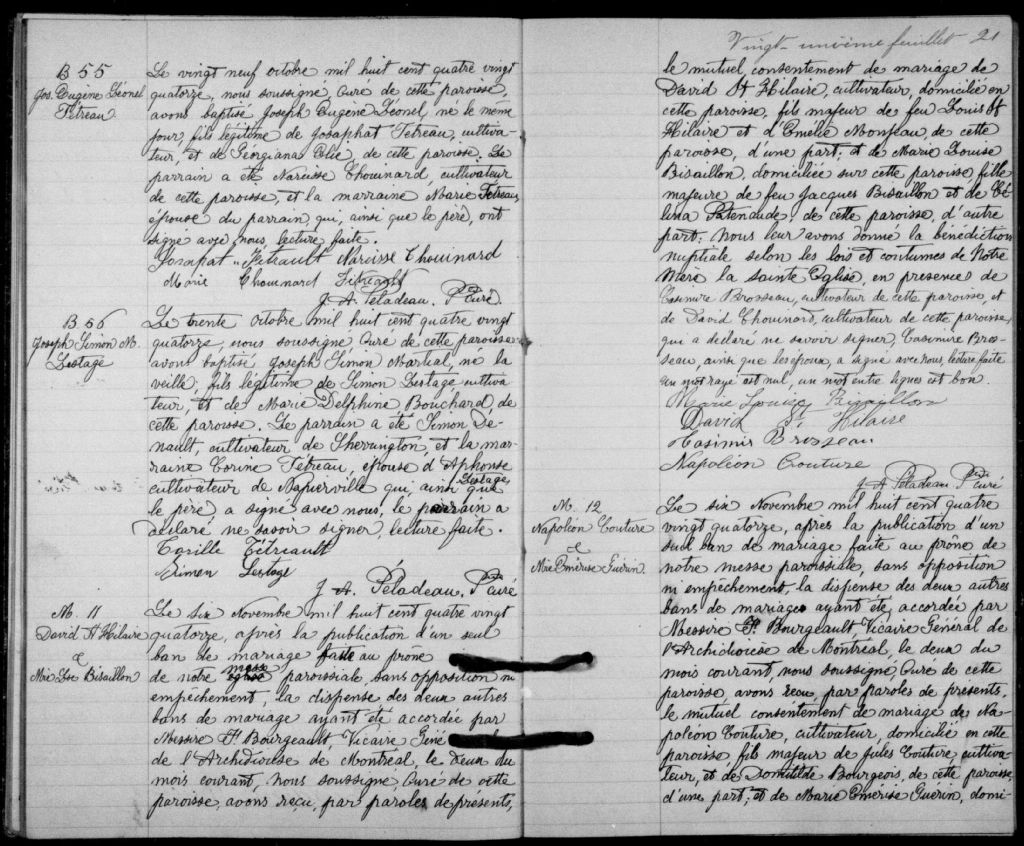 B 55
Jos. Eugène Léonel
Tétreau
Le vingt neuf octobre mil huit cent quatre vingt
quatorze, nous soussigné, Curé de cette paroisse,
avons baptisé Joseph Eugène Léonel, né le même
jour, fils légitime de Josaphat Tétreau, cultiva-
teur, et de Géorgiana Elie, de cette paroisse. Le
parrain a été Narcisse Chouinard, cultivateur
de cette paroisse, et la marraine Marie Tetreau,
épouse du parrain qui, ainsi que le père, ont
signé avec nous, lecture faite.
Josapat Tétrault Narcisse Chouinard
Marie Chouinard Tétrault
J. A. Péladeau, Ptre Curé.
B 56
Joseph Simon M.
Lestage
Le trente octobre mil huit cent quatre vingt
quatorze, nous soussigné Curé de cette paroisse
avons baptisé Joseph Simon Martial, né la
veille, fils légitime de Simon Lestage cultiva
teur, et de Marie Delphine Bouchard, de
cette paroisse. Le parrain a été Simon De-
nault, cultivateur de Sherrington, et la mar-
raine Corine Tétreau, épouse d'Alphonse
Lestage
cultivateur de Napierville qui, ainsi que
le père a signé avec nous, le parrain a
déclaré ne savoir signer, lecture faite.
Tétriault
Simon Lestage
J. A. Péladeau, Ptre Curé
M. 11
David St Hilaire
&
Mie Lse Bisaillon
Le six Novembre mil huit cent quatre vingt
quatorze, après la publication d'un seul
ban de mariage faite au prône
messe
de notre église paroissiale, sans opposition ni
empêchement, la dispense des deux autres
bans de mariage ayant été accordée par
Messire F. Bourgeault, Vicaire Géné
de l'Archidiocèse de Montréal, le deux du
mois courant, Nous soussigné, Curé de cette
paroisse, avons reçu, par paroles de présents,
Vingt-unième feuillet 21
le mutuel consentement de mariage de
David St Hilaire, cultivateur, domicilié en
cette paroisse, fils majeur de feu Louis St
Hilaire et d'Emélie Monfleau, de cette
paroisse, d'une part; et de Marie Louise
Bisaillon, domiciliée sur cette paroisse fille
majeure de feu Jacques Bisaillon et de Cé-
lina Patenaude, de cette paroisse, d'autre
part; Nous leur avons donné la bénédiction
nuptiale selon les lois et coutumes de Notre
Mère la Sainte Eglise, en présence de
Casimire Brosseau, cultivateur de cette paroisse, et
de David Chouinard, cultivateur de cette paroisse,
qui a déclaré ne savoir signer, Casimire Bros-
seau, ainsi que les époux, a signé avec nous, lecture faite
un mot rayé est nul, un mot entre lignes est bon.
Marie Louise Bisaillon
David St Hilaire
Casimir Brosseau
Napoléon Couture
J. A. Péladeau, Ptre Curé
M. 12
Napoléon Couture
&
Mie Emérise Guérin.
Le six Novembre mil huit cent quatre
vingt quatorze, après la publication d'un
seul ban de mariage faite au prône de
notre messe paroissiale, sans opposition
ni empêchement, la dispense des deux autres
bans de mariage ayant été accordée par
Messire F. Bourgeault Vicaire Général de
l'Archidiocèse de Montréal, le deux du
mois courant, nous soussigné, Curé de cette
paroisse avons reçu, par paroles de présents,
le mutuel consentement de mariage de Na-
poléon Couture, cultivateur, domicilié en cette
paroisse, fils majeur de Jules Couture, cultiva-
teur, et de Domitilde Bourgeois, de cette paroisse,
d'une part; et de Marie Emérise Guérin, domi-